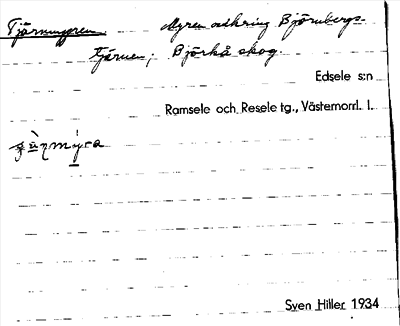 Tjärnmyren Myren omkring Björnbergs-
tjärnen; Björkå skog.
Edsele s:n
Ramsele och Resele tg., Västernorrl. l.
Sven Hiller 1934